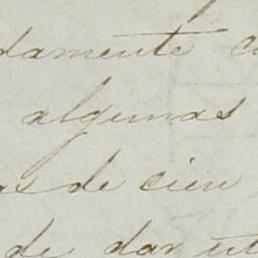 damente
algunas
as de cien
de dar